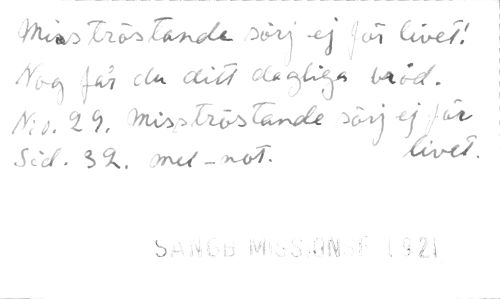 Misströstande sörj ej för livet!
Nog får du ditt dagliga bröd.
No. 29. Misströstande sörj ej för
Sid. 32. mel-not. livet.
SANGB MISSIONSF 1921